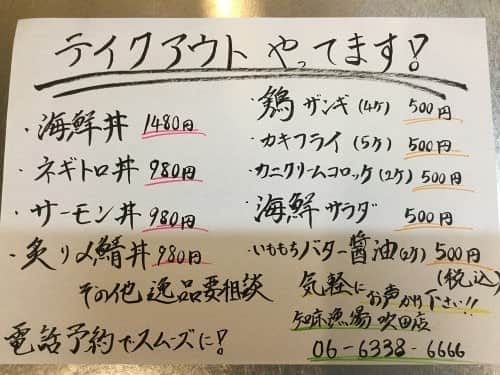 テイクアウト やってます!
・海鮮丼 1480円
・ネギトロ丼 980円
・サーモン丼 980円
・炙り〆鯖丼 980円
その他 逸品要相談
電話予約でスムーズに!
・鶏ザンギ(4ヶ) 500円
・カキフライ(5ヶ) 500円
・カニクリームコロッケ(2ケ) 500円
・海鮮サラダ 500円
・いももちバター醤油(2ケ) 500円
(税込)
気軽に
お声かけ下さい!!
知床漁場 吹田店
06-6338-6666